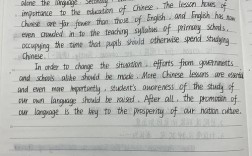 alone the language. Secondly,
importance to the education of Chinese. The lesson hours of
Chinese are far fewer than those of English, and English has now
even crowded in to the teaching syllabus of primary schools,
occupying the time that pupils should otherwise spend studying
Chinese.
In order to change the situation, efforts from governments
and schools alike should be made. More Chinese lessons are essential
and even more importantly, student's awareness of the study of
our own language should be roused. After all, the promotion of
our language is the key to the prosperity of our nation culture.